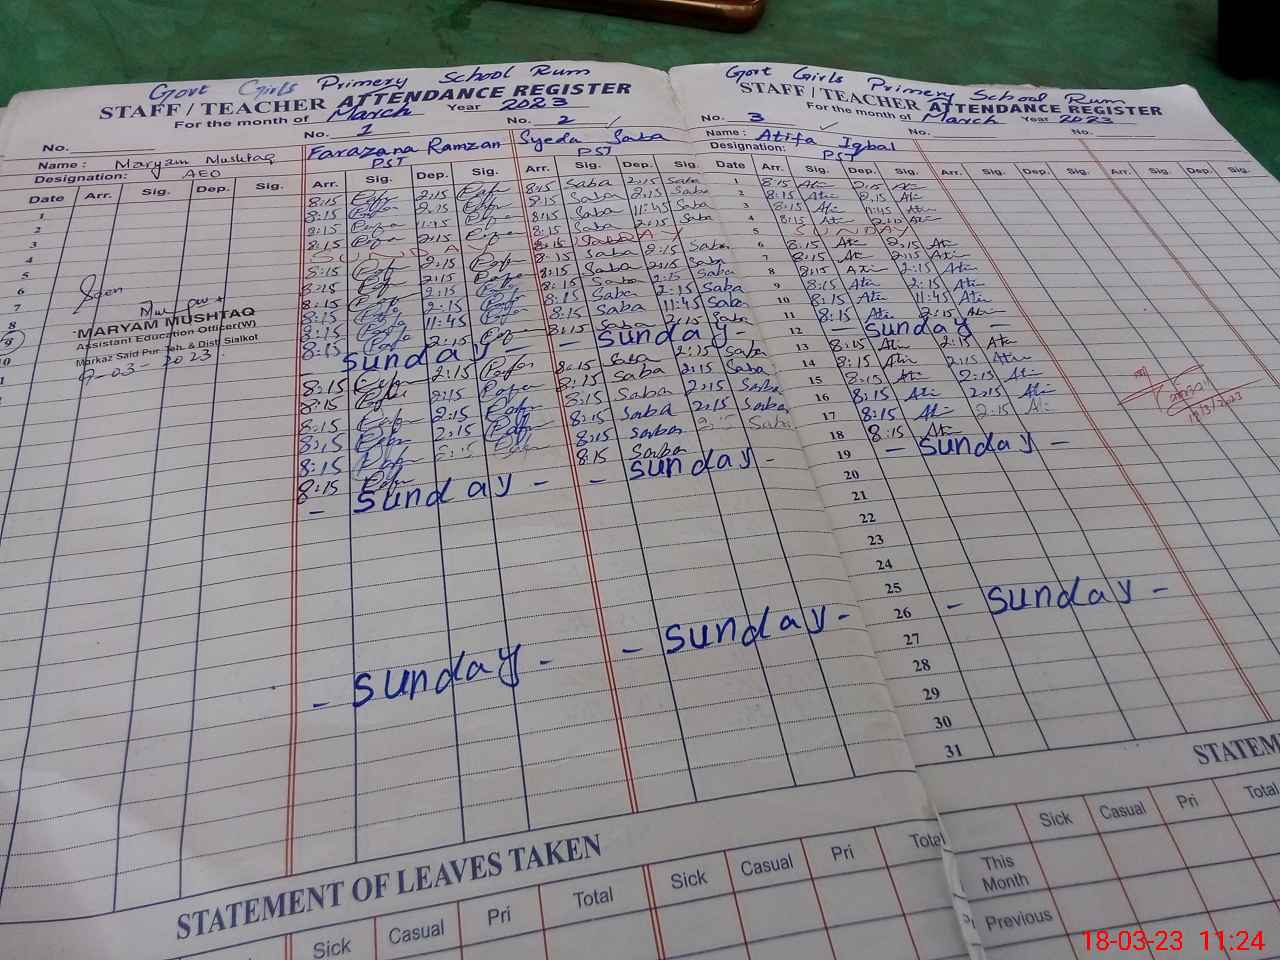 Govt Girls Primery School Rum
STAFF / TEACHER ATTENDANCE REGISTER
For the month of March Year 2023
No. No. 1 No. 2
Name : Maryam Mushtaq Farazana Ramzan Syeda Saba
Designation: AEO PST PST
Date Arr. Sig. Dep. Sig. Arr. Sig. Dep. Sig. Arr. Sig. Dep. Sig.
1 8:15 2:15 8:15 Saba 2:15 Saba
2 8:15 2:15 8:15 Saba 2:15 Saba
3 8:15 11:45 8:15 Saba 11:45 Saba
4 8:15 2:15 8:15 Saba 2:15 Saba
5 SUNDAY
6 8:15 2:15 8:15 Saba 2:15 Saba
7 8:15 2:15 8:15 Saba 2:15 Saba
8 8:15 2:15 8:15 Saba 2:15 Saba
9 8:15 2:15 8:15 Saba 2:15 Saba
10 8:15 11:45 8:15 Saba 11:45 Saba
8:15 2:15 8:15 Saba 2:15 Saba
- sunday - - sunday -
8:15 2:15 8:15 Saba 2:15 Saba
8:15 2:15 8:15 Saba 2:15 Saba
8:15 2:15 8:15 Saba 2:15 Saba
8:15 2:15 8:15 Saba 2:15 Saba
8:15 2:15 8:15 Saba 2:15 Saba
8:15 8:15 Saba
- sunday - - sunday -
- sunday - - sunday -
Seen
MARYAM MUSHTAQ
Assistant Education Officer(W)
Markaz Said Pur Teh. & Dist: Sialkot
9-03-2023
STATEMENT OF LEAVES TAKEN
Sick Casual Pri Total Sick Casual Pri Total
Govt Girls Primery School Rum
STAFF / TEACHER ATTENDANCE REGISTER
For the month of March Year 2023
No. 3 No. No.
Name : Atifa Iqbal
Designation: PST
Date Arr. Sig. Dep. Sig. Arr. Sig. Dep. Sig. Arr. Sig.
1 8:15 Ati 2:15 Ati
2 8:15 Ati 2:15 Ati
3 8:15 Ati 11:45 Ati
4 8:15 Ati 2:15 Ati
5 SUNDAY
6 8:15 Ati 2:15 Ati
7 8:15 Ati 2:15 Ati
8 8:15 Ati 2:15 Ati
9 8:15 Ati 2:15 Ati
10 8:15 Ati 11:45 Ati
11 8:15 Ati 2:15 Ati
12 - sunday -
13 8:15 Ati 2:15 Ati
14 8:15 Ati 2:15 Ati
15 8:15 Ati 2:15 Ati
16 8:15 Ati 2:15 Ati
17 8:15 Ati 2:15 Ati
18 8:15 Ati
19 - sunday -
20
21
22
23
24
25
26 - sunday -
27
28
29
30
31
STATEM
Sick Casual Pri Total
This Month
Previous
18-03-23 11:24